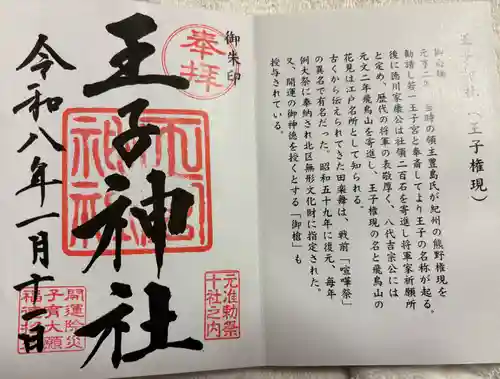 王子神社（王子権現）
元亨二年 当時の領主豊島氏が紀州の熊野権現を
勧請し若一王子宮と奉斎してより王子の名称が起る。
後に徳川家康公は社領二百石を寄進し将軍家祈願所
と定め、歴代の将軍の表敬厚く、八代吉宗公には
元文二年飛鳥山を寄進し、王子権現の名と飛鳥山の
花見は江戸名所として知られる。
古くから伝えられてきた田楽舞は、戦前「喧嘩祭」
の異名で有名だった。昭和五十九年に復元、毎年
例大祭に奉納され北区無形文化財に指定された。
又、開運の御神徳を授くとする「御槍」も
授与されている。
御朱印
奉拝
王子神社
元准勅祭
十社之内
令和八年一月十一日
開運除災
子育大願
福徳